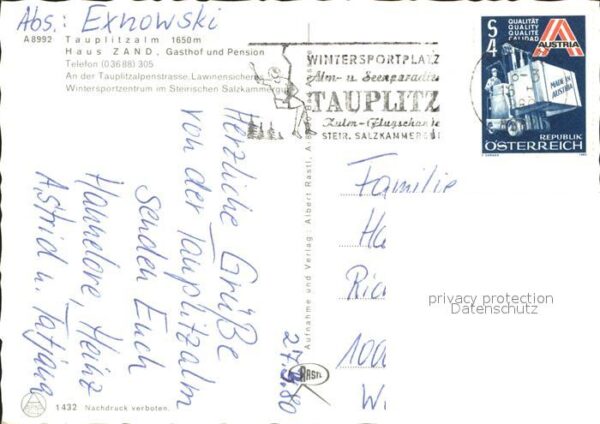 Abs.: Exnowski
A 8992 · Tauplitzalm 1650 m
Haus ZAND, Gasthof und Pension
Telefon (0 36 88) 305
An der Tauplitzalpenstrasse. Lawinensicheres
Wintersportzentrum im Steirischen Salzkammergut
WINTERSPORTPLATZ
Alm- u. Seenparadies
TAUPLITZ
Kulm-Flugschanze
STEIR. SALZKAMMERGUT
S 4
QUALITÄT
QUALITY
QUALITE
CALIDAD
A
AUSTRIA
MADE IN AUSTRIA
REPUBLIK
ÖSTERREICH
Herzliche Grüße
von der Tauplitzalm
senden Euch
Hannelore, Heinz
Astrid u. Tatjana
27.3.80
Aufnahme und Verlag: Albert Rastl,
RASTL
Familie
Ha
Ric
1000
W
privacy protection
Datenschutz
1432 Nachdruck verboten.